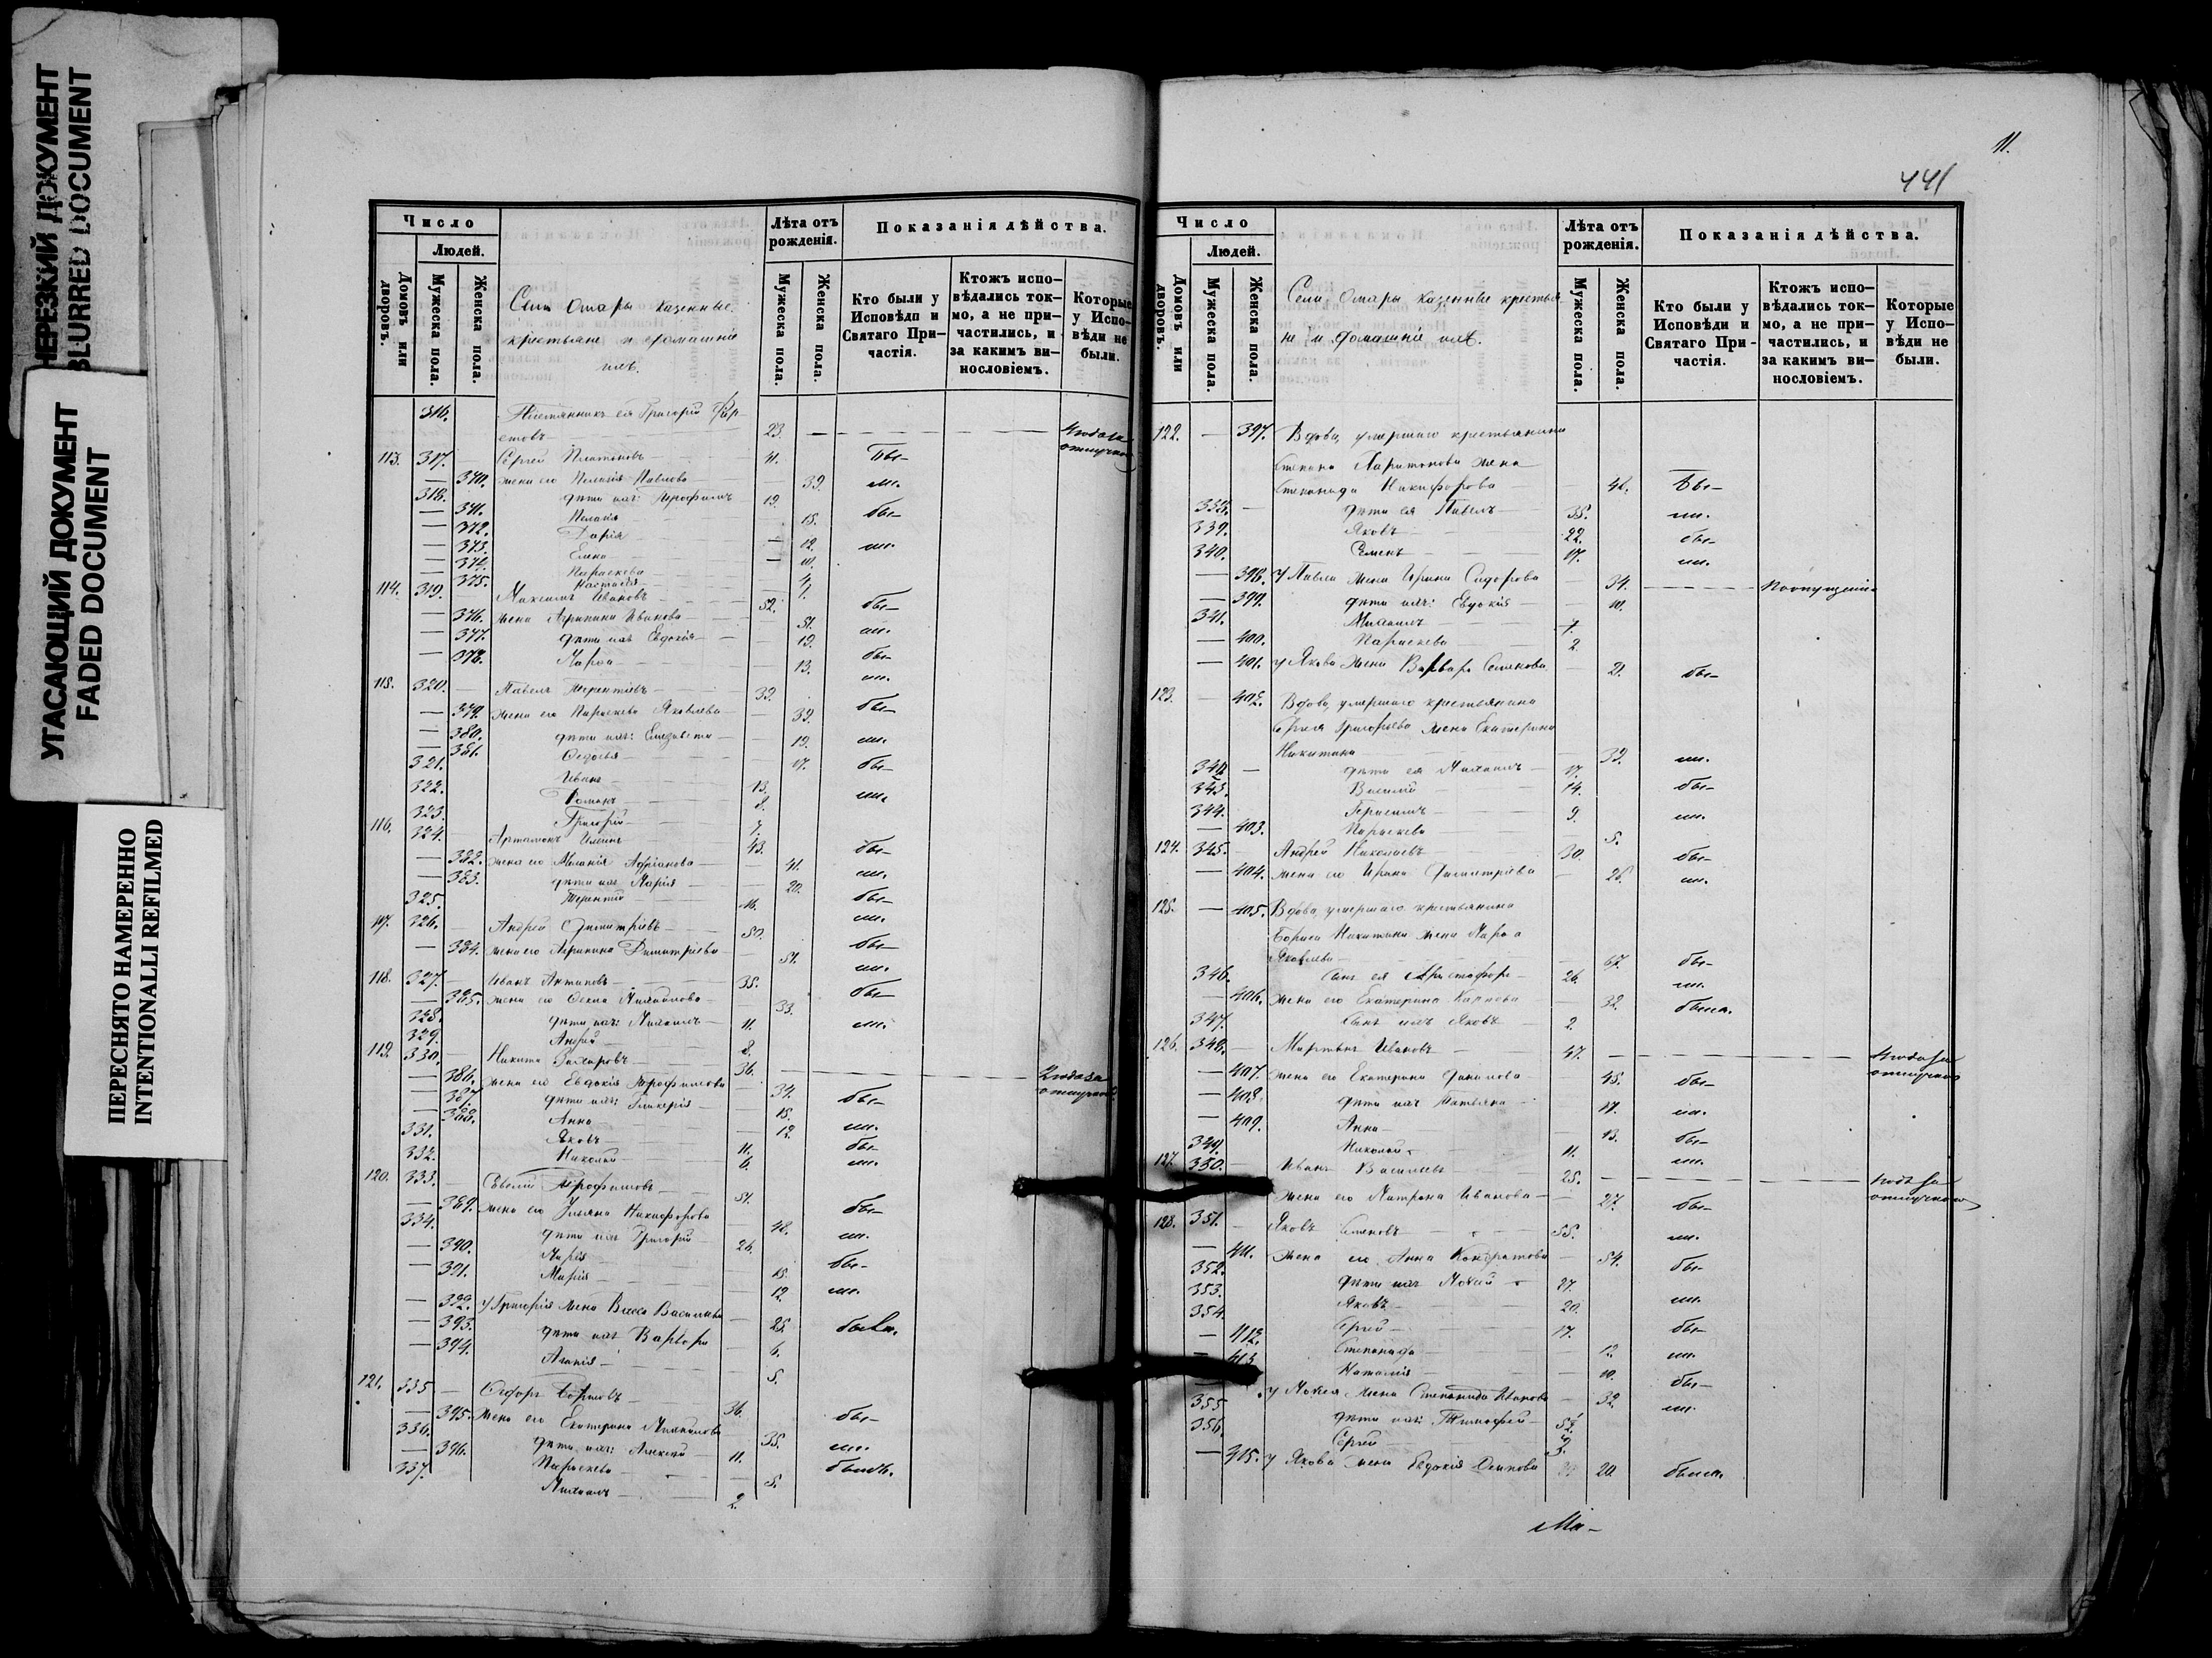 НЕРЕЗКИЙ ДОКУМЕНТ
BLURRED DOCUMENT
УГАСАЮЩИЙ ДОКУМЕНТ
FADED DOCUMENT
ПЕРЕСНЯТО НАМЕРЕННО
INTENTIONALLI REFILMED
Число
Людей.
Домовъ или дворовъ.
Мужеска пола.
Женска пола.
Села Омары казенные
крестьяне и домашніе
ихъ.
Лѣта отъ рожденія.
Мужеска пола.
Женска пола.
Показанія дѣйства.
Кто были у Исповѣди и Святаго Причастія.
Ктожъ исповѣдались токмо, а не причастились, и за какимъ винословіемъ.
Которые у Исповѣди не были.
316. ея Григорій
23.
113. 317. Сергей Платоновъ 41. бы-
370. жена его Пелагія Павлова 39. ли.
318. дѣти ихъ: 19. бы-
371. Пелагія 15.
372. Дарія 12. ли.
373. Елена 10.
374. Параскева
375. Настасія
114. 319. Максимъ Ивановъ 52. бы-
376. жена Агрипина Иванова 51. ли.
377. дѣти ихъ Евдокія 19. бы-
378. Марѳа 13. ли.
115. 320. Павелъ Терентіевъ 39. бы-
379. жена его Параскева Яковлева 39. ли.
380. дѣти ихъ: Елизавета 19. бы-
381. Ѳедосья 17. ли.
321. Иванъ 13.
322. Романъ 8.
323. Григорій 7.
116. 324. Артамонъ 43. бы-
382. жена его Меланія Адріанова 41. ли.
383. дѣти ихъ Марія 20. бы-
325. Терентій 16. ли.
117. 326. Андрей Димитріевъ 50. бы-
384. жена его Агрипина Димитріева 51. ли.
118. 327. Иванъ Антиповъ 35. бы-
385. жена его Ѳекла Михайлова 33. ли.
328. дѣти ихъ: Михаилъ 11.
329. Андрей 8.
119. 330. Никита Захаровъ 36.
386. жена его Евдокія Трофимова 34. бы-
387. дѣти ихъ: Гликерія 15. ли.
388. Анна 12. бы-
331. Яковъ 11. ли.
332. Николай 6.
120. 333. Савелій Трофимовъ 51. бы-
389. жена его Ульяна Никифорова 48. ли.
334. дѣти ихъ Григорій 26. бы-
390. Марія 15. ли.
391. Марія 12.
392. у Григорія жена Васса Васильева 25. были.
393. дѣти ихъ Варвара 6.
394. Агапія 5.
121. 335 Ѳедоръ Борисовъ 36. бы-
395. жена его Екатерина Михайлова 35. ли.
336. дѣти ихъ: Алексей 11. былъ.
396. Параскева 5.
337. Михаилъ 2.
11.
441
Число
Людей.
Домовъ или дворовъ.
Мужеска пола.
Женска пола.
Села Омары казенные крестья
не и домашніе ихъ.
Лѣта отъ рожденія.
Мужеска пола.
Женска пола.
Показанія дѣйства.
Кто были у Исповѣди и Святаго Причастія.
Ктожъ исповѣдались токмо, а не причастились, и за какимъ винословіемъ.
Которые у Исповѣди не были.
122. 397. Вдова, умершаго крестьянина
Степана Харитонова жена
Степанида Никифорова бы-
338. дѣти ея Павелъ 35. ли.
339. Яковъ 22. бы-
340. Семенъ 17. ли.
398. у Павла жена Ирина Сидорова 34. По опущенію
399. дѣти ихъ: Евдокія 10.
341. Михаилъ 7.
400. Параскева 2.
401. у Якова жена Варвара Семенова 21. бы-
123. 402. Вдова, умершаго крестьянина
Сергея Григорьева жена Екатерина
Никитина 39. ли.
342. дѣти ея Михаилъ 17. бы-
343. Василій 14. ли.
344. Герасимъ 9.
403. Параскева 5.
124. 345. Андрей Николаевъ 30. бы-
404. жена его Ирина Димитріева 26. ли.
125. 405. Вдова, умершаго крестьянина
Бориса Никитина жена Марѳа
Яковлева 67. бы-
346. Сынъ ея Христофоръ 26. ли.
406. жена его Екатерина Карпова 32. была.
347. Сынъ ихъ Яковъ 2.
126. 348. Мартынъ Ивановъ 47.
407. жена его Екатерина 48. бы-
408. дѣти ихъ Татьяна 17. ли.
409. Анна 13. бы-
349. Николай 11. ли.
127. 350. Иванъ Васильевъ 25.
жена его Матрона Иванова 27. бы-
128. 351. Яковъ 55. ли.
411. жена его Анна Кондратова 54. бы-
352. дѣти ихъ Мокей 27. ли.
353. Яковъ 20. бы-
354. Сергей 17. ли.
412. Степанида 12. бы-
413. Наталія 10. ли.
у Мокея жена Степанида Иванова 32.
355 дѣти ихъ: Тимофей
356. Сергей
415. у Якова жена Евдокія Осипова 20 была.
Ма-